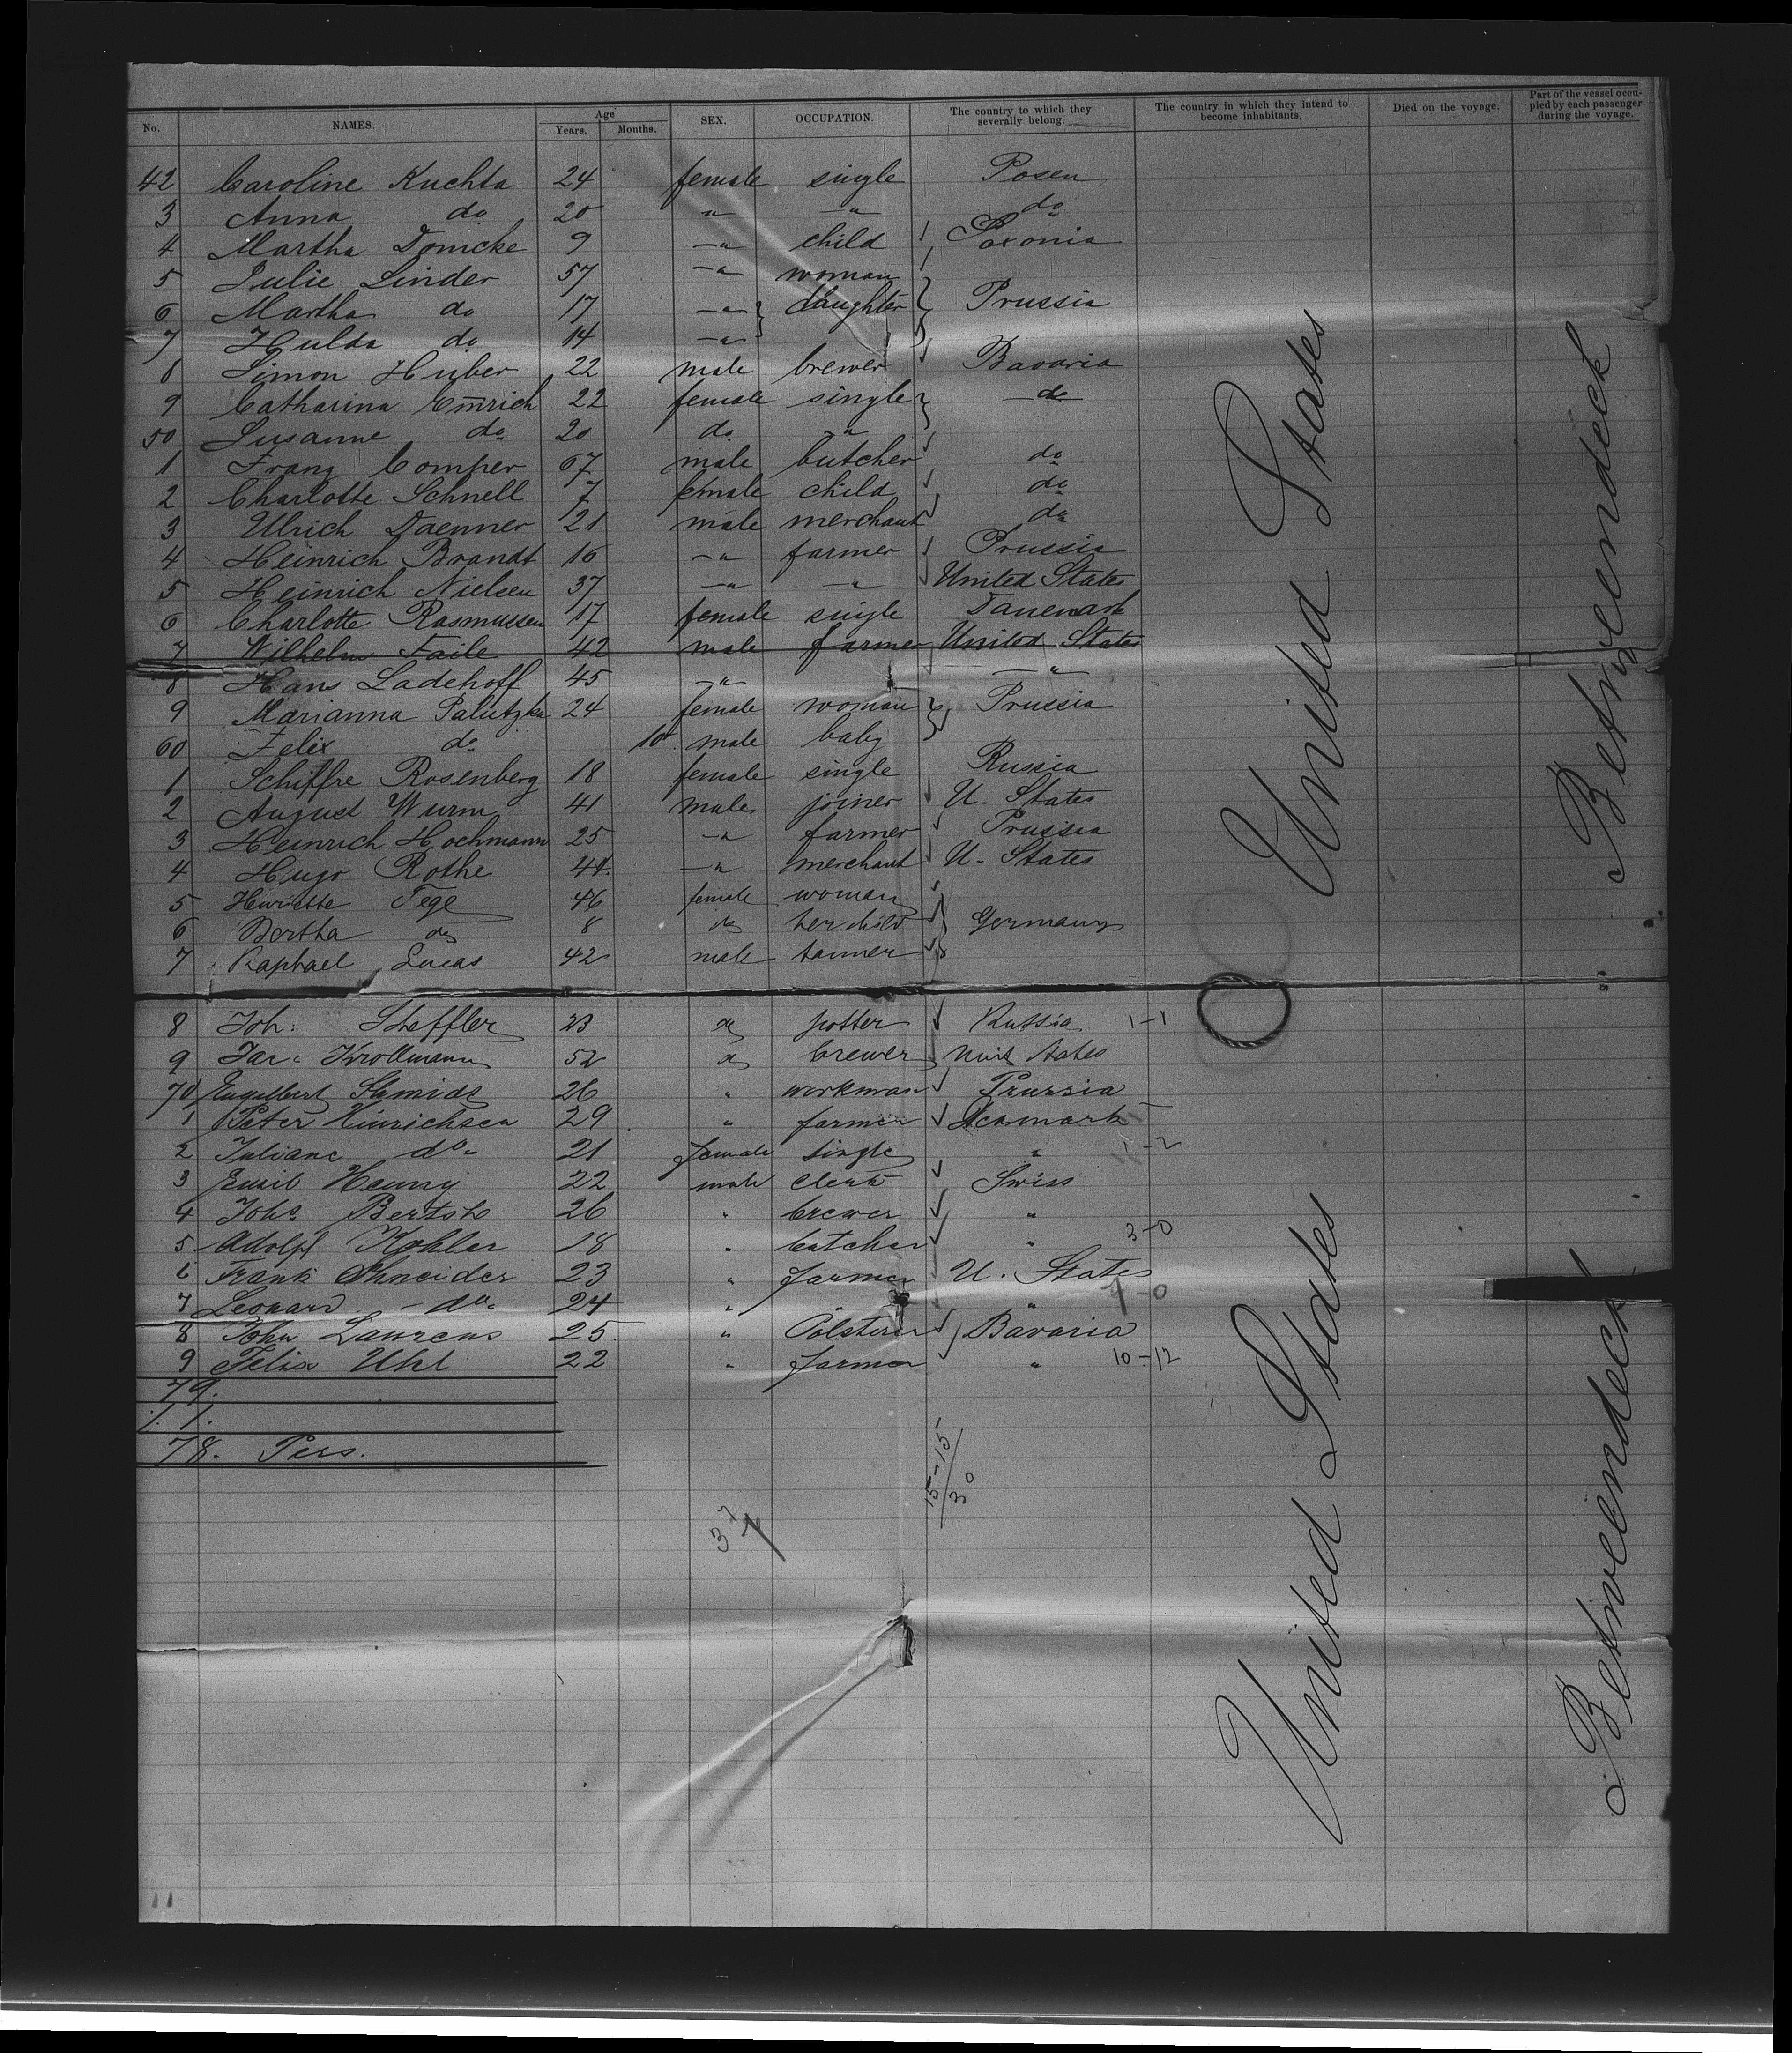 No. NAMES. Age Years. Months. SEX. OCCUPATION. The country to which they severally belong. The country in which they intend to become inhabitants. Died on the voyage. Part of the vessel occupied by each passenger during the voyage.
42 Caroline Kuchta 24 female single Posen
3 Anna do 20 " " do
4 Martha Domcke 9 " child Saxonia
5 Julie Linder 57 " woman
6 Martha do 17 " daughter Prussia
7 Hulda do 14 "
8 Simon Huber 22 male brewer Bavaria
9 Catharina Em̄rich 22 female single do
50 Susanne do 20 do "
1 Franz Comper 67 male butcher do
2 Charlotte Schnell 7 female child do
3 Ulrich Daenner 21 male merchant do
4 Heinrich Brandt 16 " farmer Prussia
5 Heinrich Nielsen 37 " " United States
6 Charlotte Rasmussen 17 female single Danemark
7 Wilhelm Faile 42 male farmer United States
8 Hans Ladehoff 45 " "
9 Marianna Palutzka 24 female woman Prussia
60 Felix do 10 male baby
1 Schiffre Rosenberg 18 female single Russia
2 August Wurm 41 male joiner U. States
3 Heinrich Hochmann 25 " farmer Prussia
4 Hugo Rothe 44 " merchant U. States
5 Henriette Tege 46 female woman
6 Bertha do 8 do her child Germany
7 Raphael Lucas 42 male tanner
8 Joh: Scheffler 23 do potter Russia 1-1
9 Jac: Krollmann 52 do brewer Unit States
70 Engelbert Schmidt 26 " workman Prussia
1 Peter Hinrichsen 29 " farmer Denmark
2 Juliane do 21 female single " 1-2
3 Emil Henny 22 male clerk Swiss
4 Johs Bertsch 26 " brewer "
5 Adolf Kohler 18 " butcher " 3-0
6 Frank Schneider 23 " farmer U. States
7 Leonard do 24 " " " 1-0
8 John Laurens 25 " Polsterer Bavaria
9 Felix Uhl 22 " farmer " 10-12
79.
1/. 1.
78. Pers.
15-15
30
37
United States
United States
Betweendeck
Betweendeck
11